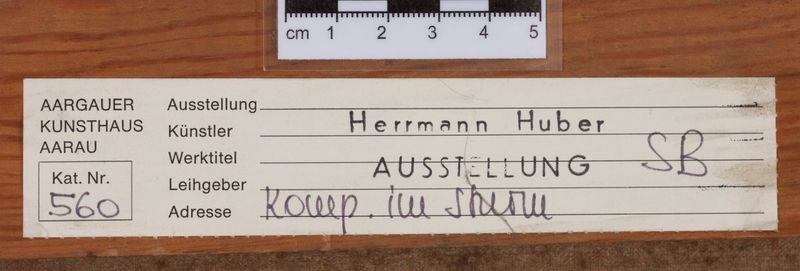 cm 1 2 3 4 5
AARGAUER
KUNSTHAUS
AARAU
Kat. Nr.
560
Ausstellung
Künstler Herrmann Huber
Werktitel
Leihgeber AUSSTELLUNG SB
Adresse Komp. im Sturm